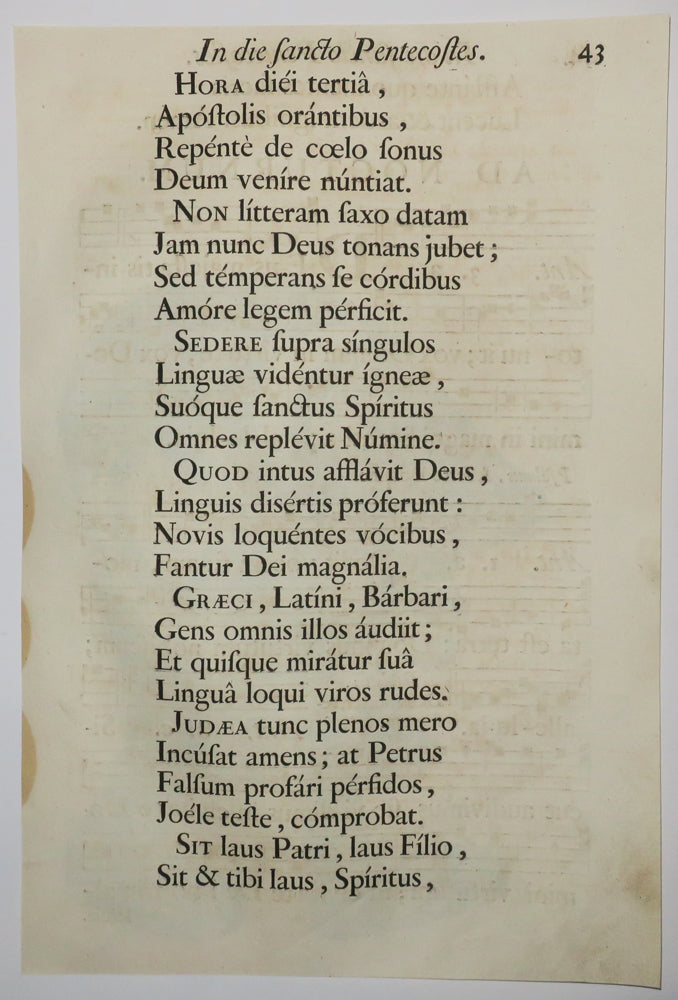 In die ſancto Pentecoſtes. 43
HORA diéi tertiâ ,
Apóſtolis orántibus ,
Repéntè de cœlo ſonus
Deum veníre núntiat.
NON lítteram ſaxo datam
Jam nunc Deus tonans jubet ;
Sed témperans ſe córdibus
Amóre legem pérficit.
SEDERE ſupra síngulos
Linguæ vidéntur ígneæ ,
Suóque ſanctus Spíritus
Omnes replévit Númine.
QUOD intus afflávit Deus ,
Linguis disértis próferunt :
Novis loquéntes vócibus ,
Fantur Dei magnália.
GRÆCI , Latíni , Bárbari ,
Gens omnis illos áudiit ;
Et quiſque mirátur ſuâ
Linguâ loqui viros rudes.
JUDÆA tunc plenos mero
Incúſat amens ; at Petrus
Falſum profári pérfidos ,
Joéle teſte , cómprobat.
SIT laus Patri , laus Fílio ,
Sit & tibi laus , Spíritus ,